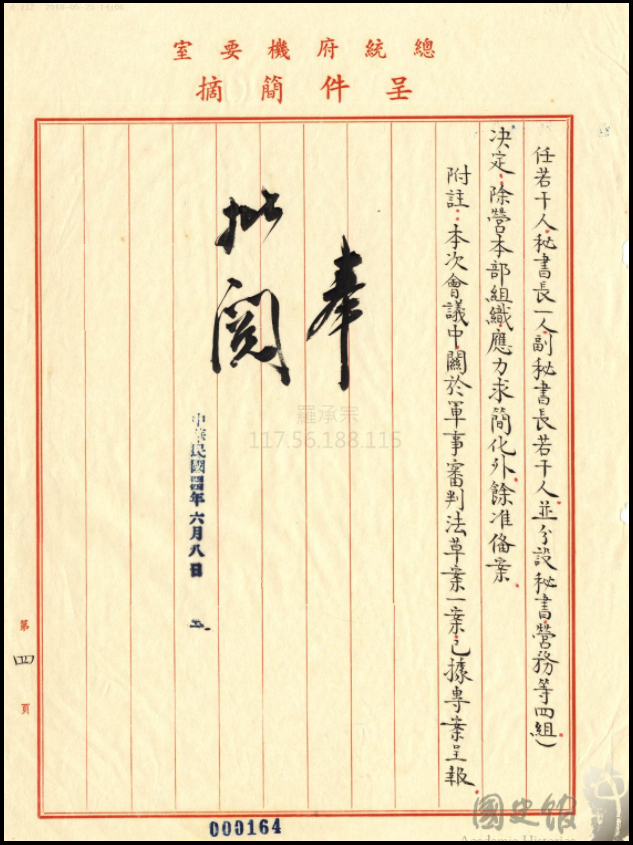 總統府機要室
呈件簡摘
任若干人秘書長一人副秘書長若干人並分設秘書營務等四組)
決定:除營本部組織應力求簡化外餘准備案.
附註:本次會議中關於軍事審判法草案一案已據專案呈報.
奉
批閱
中華民國四四年六月八日
第四頁
羅承宗
117.56.188.115
000164
國史館